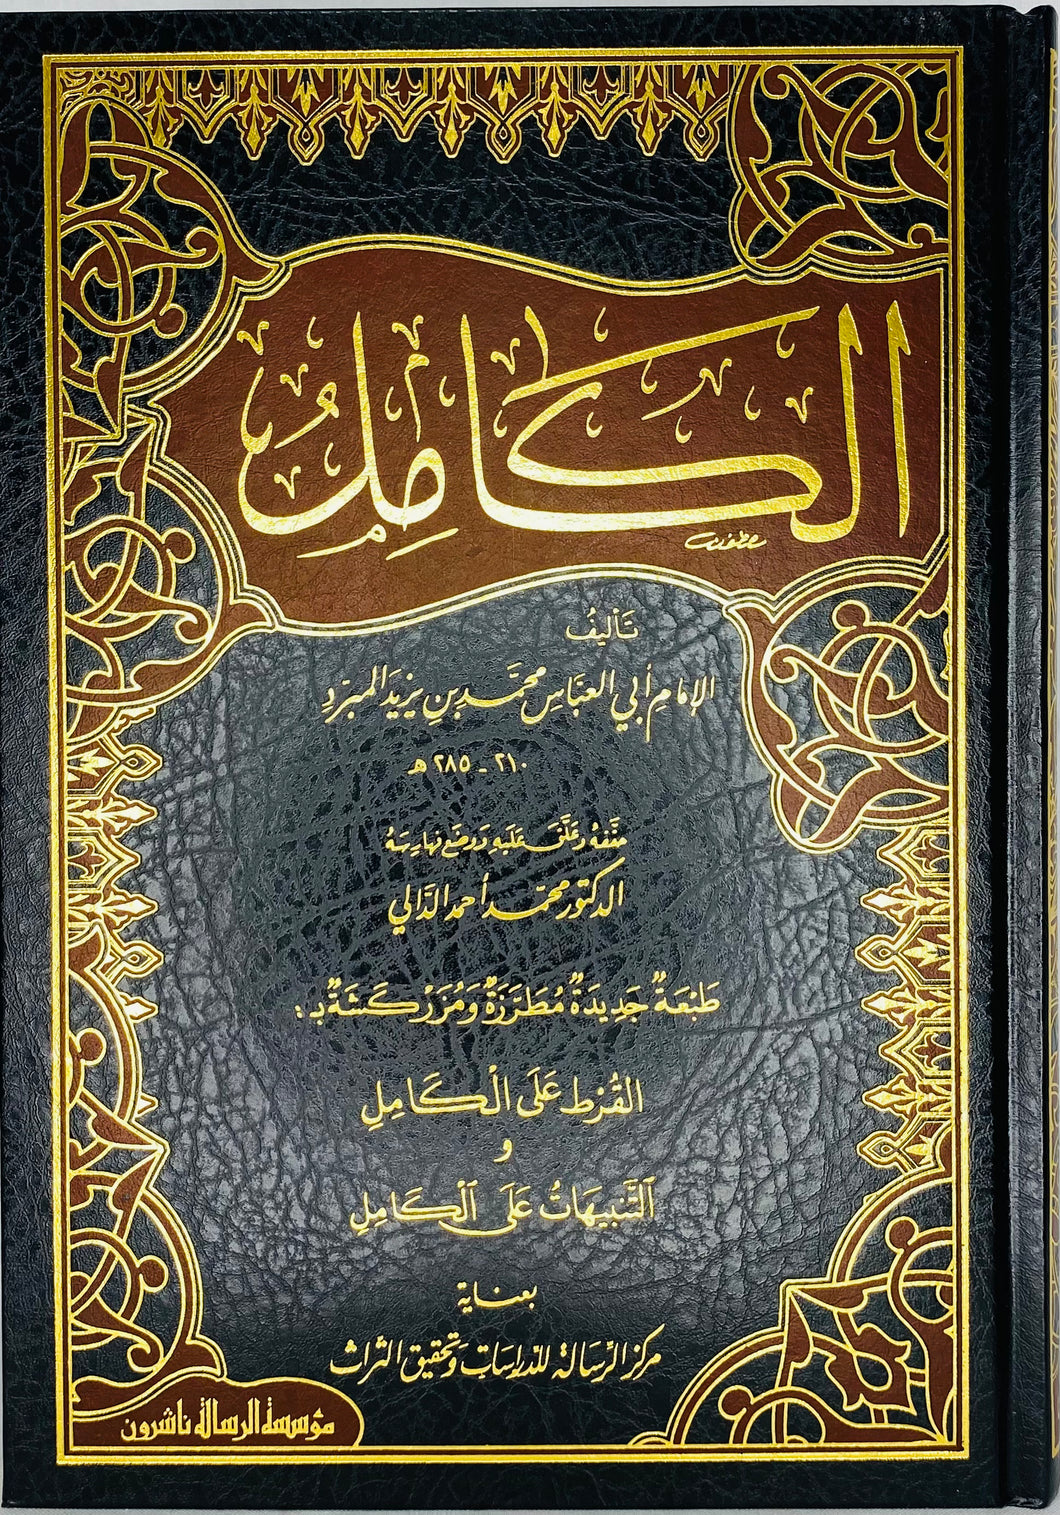 الكَامِلُ
مصطفى
تَأليفُ
الإمَامِ أبي العبَّاسِ محمَّد بنِ يزيدَ المبرّدِ
٢١٠ - ٢٨٥ هـ
حقَّقهُ وعَلَّق عَليهِ وَوضَع فهارسَهُ
الدكتور محمّد أحمد الدَّالي
طَبْعَةٌ جَدِيدَةٌ مُطَرَّزَةٌ وَمُزَرْكَشَةٌ بـ :
القُرْط عَلَى الْكَامِلِ
و
التَّنبِيهَاتُ عَلَى الْكَامِلِ
بعناية
مركز الرِّسالة للدِّراسَات وَتحقيق التّراث
مؤسسة الرسالة ناشرون